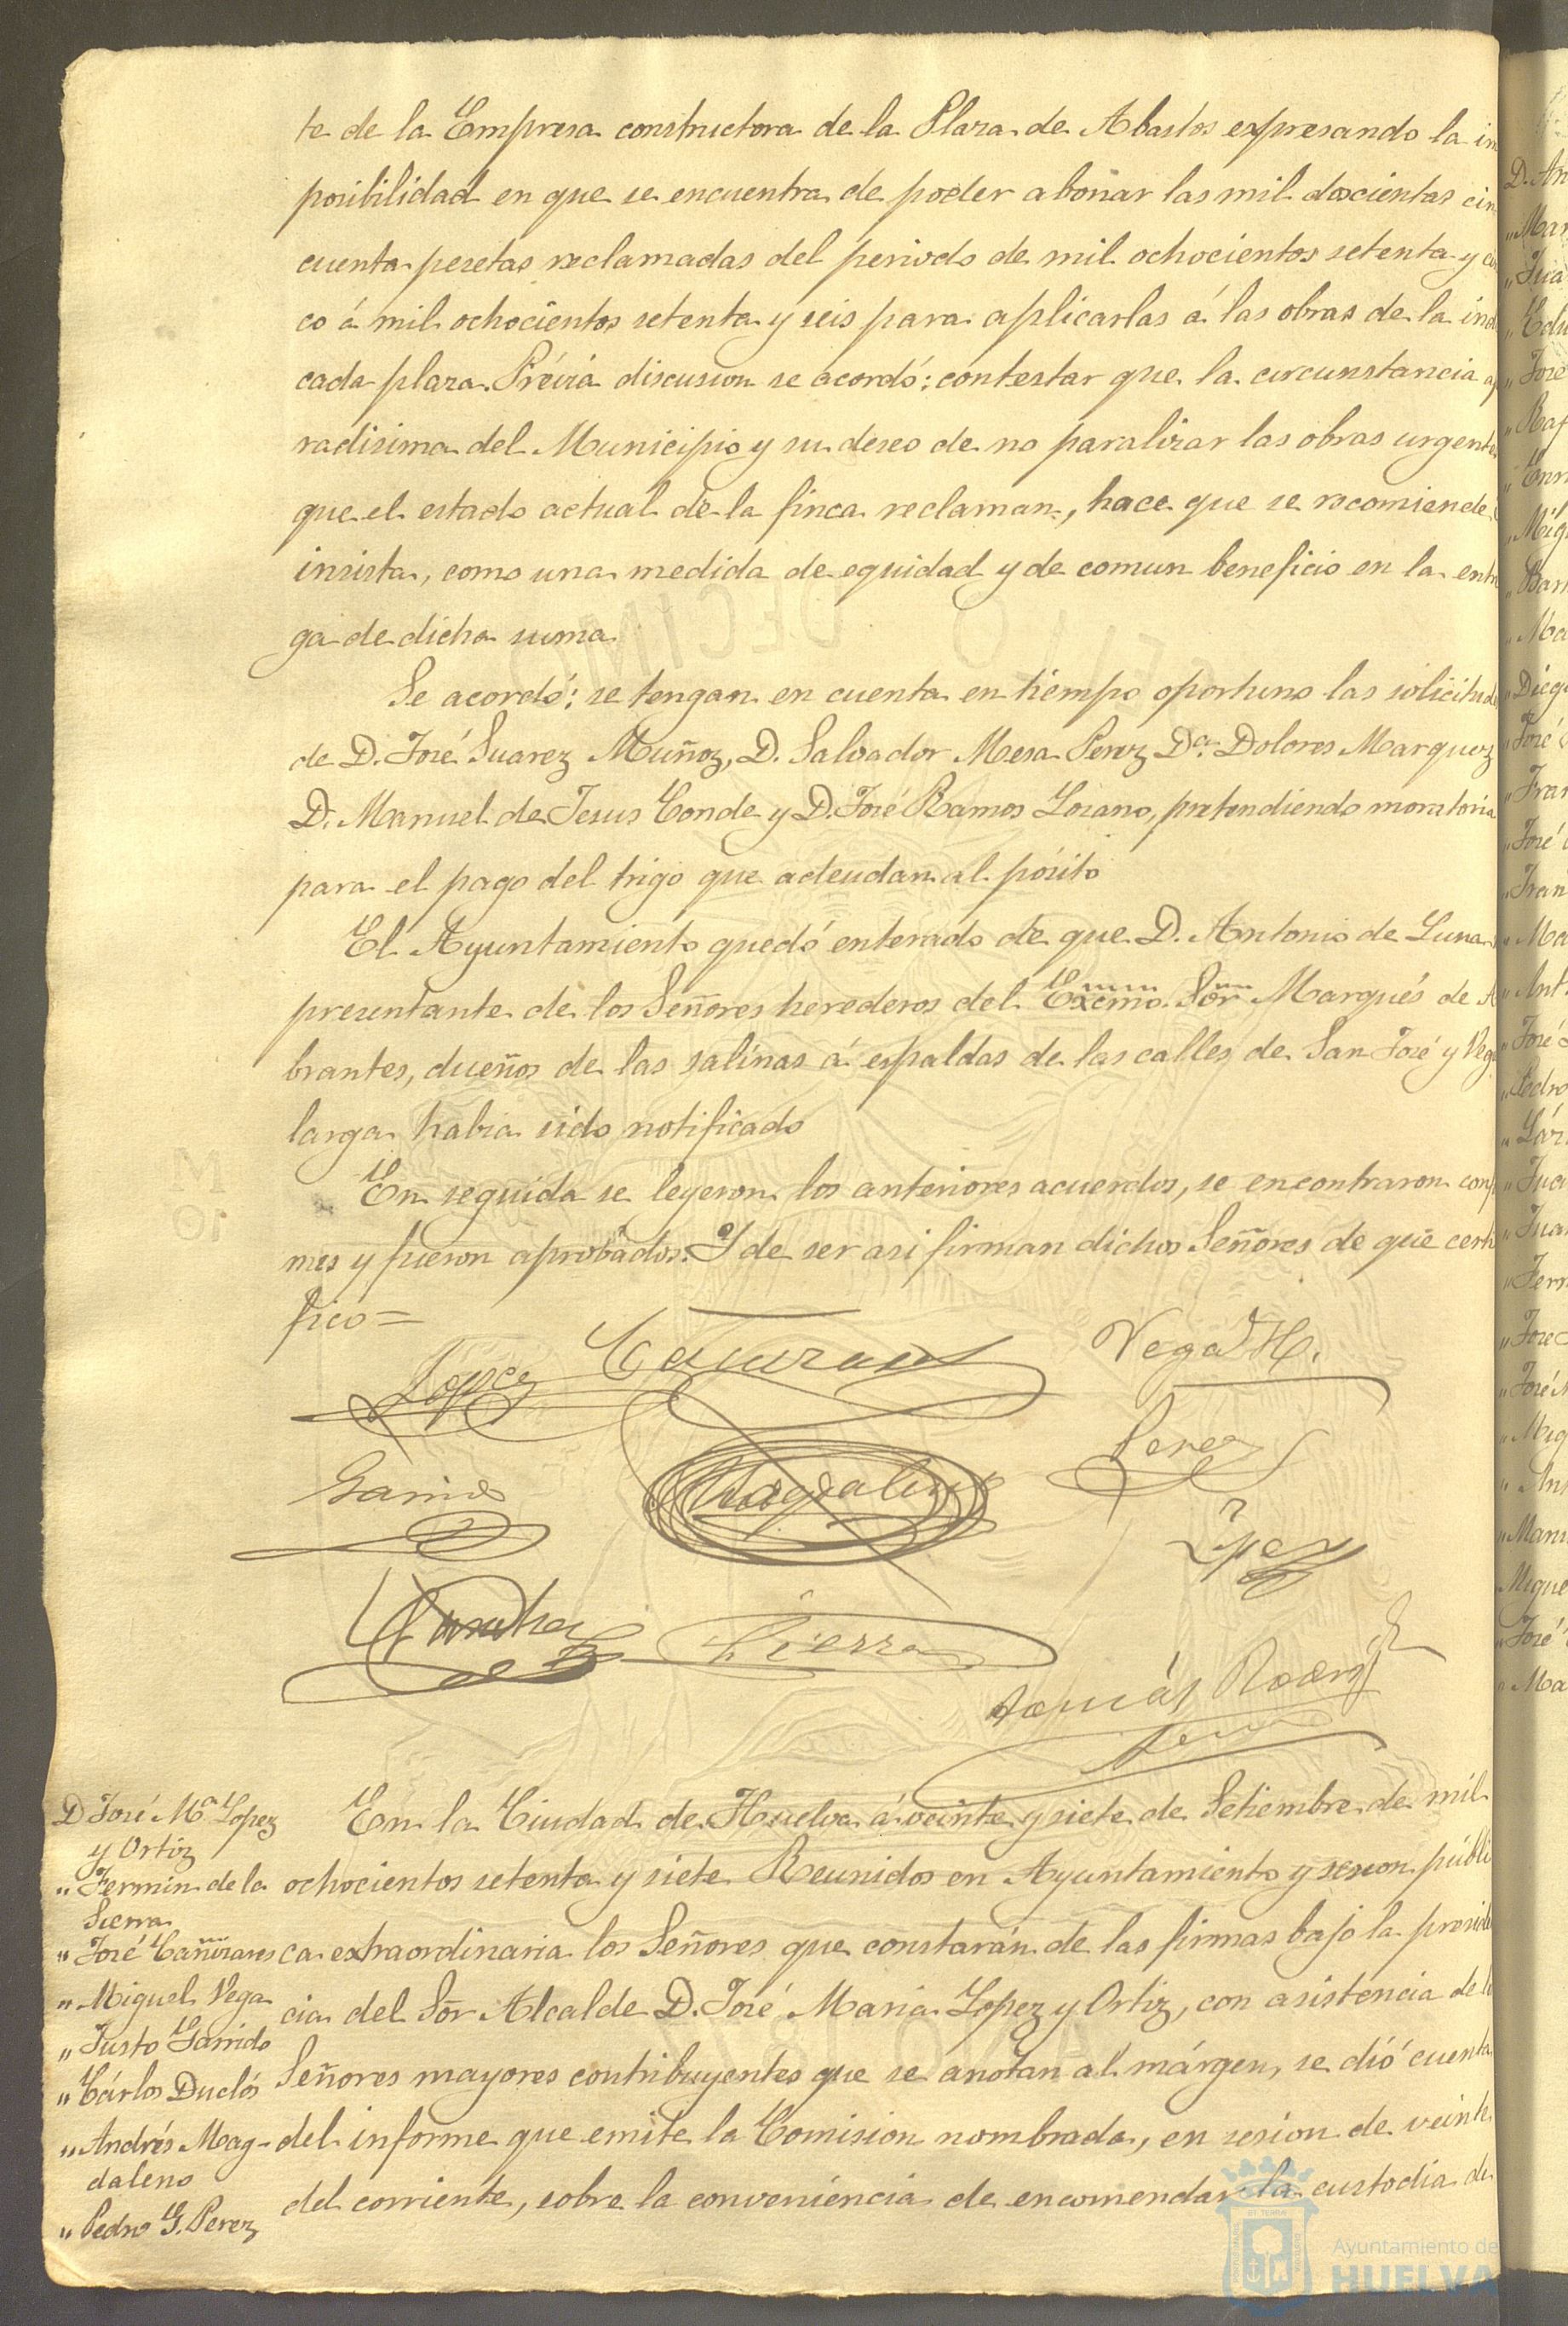 te de la Empresa constructora de la Plaza de Abastos expresando la im
posibilidad en que se encuentra de poder abonar las mil doscientas cin
cuenta pesetas reclamadas del periodo de mil ochocientos setenta y cin
co á mil ochocientos setenta y seis para aplicarlas á las obras de la indi
cada plaza. Prévia discusion se acordó: contestar que la circunstancia ap
radisima del Municipio y su deseo de no paralizar las obras urgentes
que el estado actual de la finca reclaman, hace que se recomiende é
insista, como una medida de equidad y de comun beneficio en la entre
ga de dicha suma.
Se acordó: se tengan en cuenta en tiempo oportuno las solicitudes
de D. José Suarez Muñoz, D. Salvador Mesa Perez Dª Dolores Marquez
D. Manuel de Jesus Conde y D. José Ramos Lozano, pretendiendo moratoria
para el pago del trigo que adeudan al pósito
El Ayuntamiento quedó enterado de que D. Antonio de Luna
presentante de los Señores herederos del Excmo. Sór Marqués de A
brantes, dueños de las salinas á espaldas de las calles de San José y Vega
larga habia sido notificado
En seguida se leyeron los anteriores acuerdos, se encontraron confor
mes y fueron aprobados. Y de ser asi firman dichos Señores de que certi
fico=
Lopez Cañizares Vega H.
Garrido Magdaleno Perez
Lopez
Sierra
Tomás Rodrig
D José Mª Lopez
y Ortiz
" Fermin de la
Sierra
" José Cañizares
" Miguel Vega
" Justo Garrido
" Cárlos Duclós
" Andrés Mag-
daleno
" Pedro G. Perez
En la Ciudad de Huelva á veinte y siete de Setiembre de mil
ochocientos setenta y siete Reunidos en Ayuntamiento y sesion públi
ca extraordinaria los Señores que constarán de las firmas bajo la presiden
cia del Sór Alcalde D. José Maria Lopez y Ortiz, con asistencia de los
Señores mayores contribuyentes que se anotan al márgen, se dió cuenta
del informe que emite la Comision nombrada, en sesion de veinte
del corriente, sobre la conveniencia de encomendar la custodia de
Ayuntamiento de
HUELVA